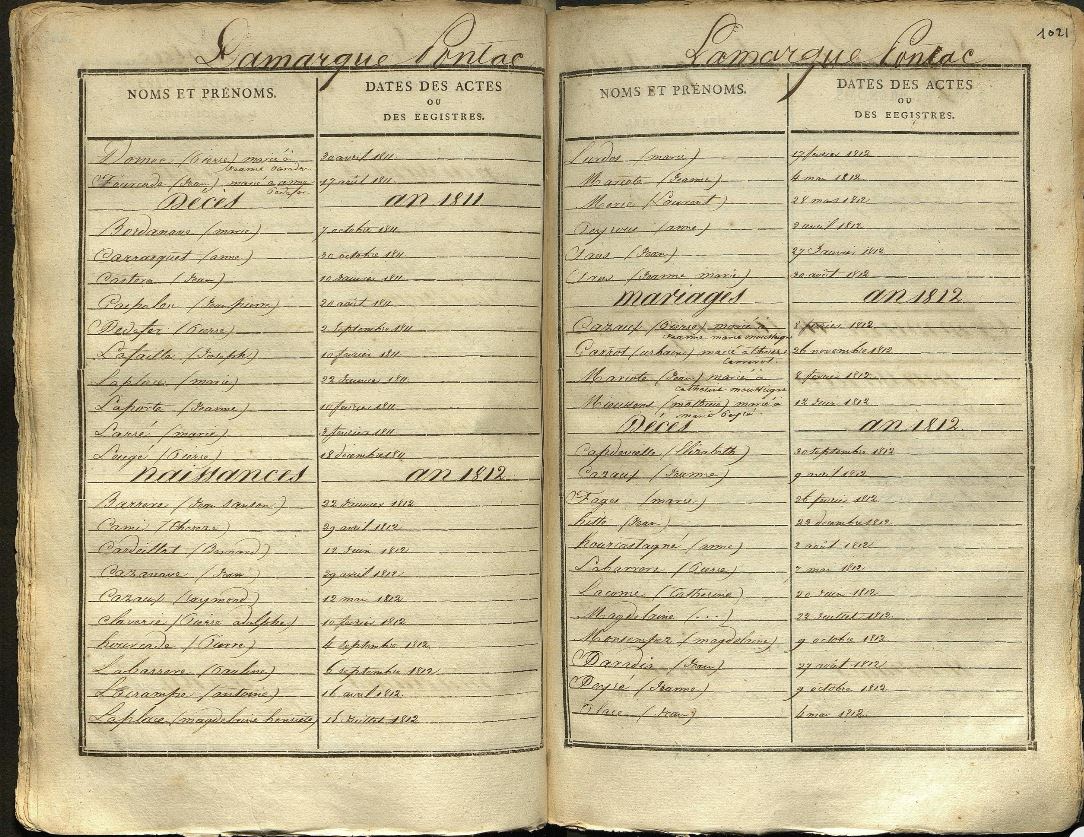 Lamarque Pontac
NOMS ET PRÉNOMS. DATES DES ACTES
OU
DES REGISTRES.
(Pierre) marié à 30 avril 1811
Jeanne
Fourcade (Jean) marié à anne 17 août 1811
Décès an 1811
Bordanave (marie) 7 octobre 1811
Carrasquet (anne) 30 octobre 1811
Castera (Jean) 10 Janvier 1811
(Jean pierre) 30 août 1811
(Pierre) 2 Septembre 1811
Lafaille (Joseph) 10 février 1811
Laplace (marie) 22 Janvier 1811
Laporte (Jeanne) 10 février 1811
Larré (marie) 3 février 1811
Lougé (Pierre) 18 décembre 1811
naissances an 1812
Barrere (Jean 22 Janvier 1812
Cami (Thomas) 29 avril 1812
Cardeillat (Bernard) 12 Juin 1812
Cazanave (Jean) 29 avril 1812
Cazaux (Raymond) 12 mai 1812
Claverie (Pierre adolphe) 10 février 1812
hourcade (Pierre) 4 septembre 1812
Labarrere (Pauline) 6 septembre 1812
Lacrampe (antoine) 16 avril 1812
Laplace (magdeleine henriette) 18 Juillet 1812
1021
Lamarque Pontac
NOMS ET PRÉNOMS. DATES DES ACTES
OU
DES REGISTRES.
Lurdos (marie) 17 février 1812
Mariote (Jeanne) 4 mai 1812
28 mars 1812
Peyrous (anne) 2 avril 1812
(Jean) 27 Janvier 1812
(Jeanne marie) 30 août 1812
mariages an 1812
Cazaux (Pierre) marié à 8 février 1812
Jeanne marie
Garrot (urbain) marié à 26 novembre 1812
Mariote (Jean) marié à 8 février 1812
Catherine
(mathieu) marié à 12 Juin 1812
marie
Décès an 1812
Capdevielle (Elizabeth) 30 septembre 1812
Cazaux (Jeanne) 9 avril 1812
Fages (marie) 26 février 1812
hitte (Jean) 23 décembre 1812
hourcastagné (anne) 2 août 1812
Labarrere (Pierre) 7 mai 1812
Lacome (Catherine) 20 Juin 1812
Magdelaine (...) 22 Juillet 1812
(magdelaine) 9 octobre 1812
Paradis (Jean) 27 août 1812
Peyré (Jeanne) 9 octobre 1812
Place (Jean) 4 mai 1812